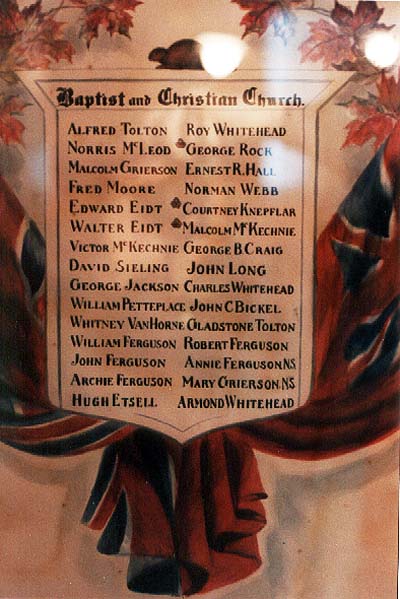 Baptist and Christian Church.
Alfred Tolton Roy Whitehead
Norris McLeod George Rock
Malcolm Grierson Ernest R. Hall
Fred Moore Norman Webb
Edward Eidt Courtney Knepflar
Walter Eidt Malcolm McKechnie
Victor McKechnie George B Craig
David Sieling John Long
George Jackson Charles Whitehead
William Petteplace John C Bickel
Whitney VanHorne Gladstone Tolton
William Ferguson Robert Ferguson
John Ferguson Annie Ferguson N.S
Archie Ferguson Mary Grierson N.S
Hugh Etsell Armond Whitehead